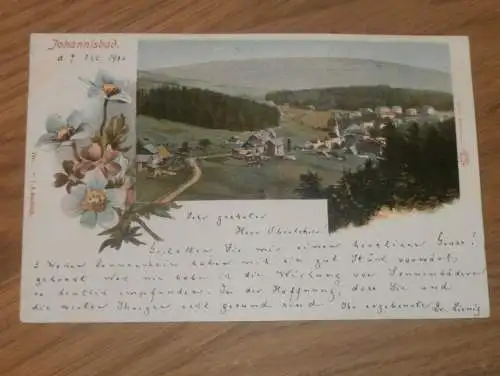 Johannisbad.
d. 7. 1900
Sehr geehrter
Herr Oberlehrer!
Gestatten Sie mir einen herzlichen Gruss!
3 Wochen Sonnenschein haben mich ein gut Stück vorwärts
gebracht. Was nie habe ich die Wirkung von Sonnenbädern
so deutlich empfunden. In der Hoffnung, dass Sie und
die werten Ihrigen recht gesund sind Ihr ergebenster
Dr.